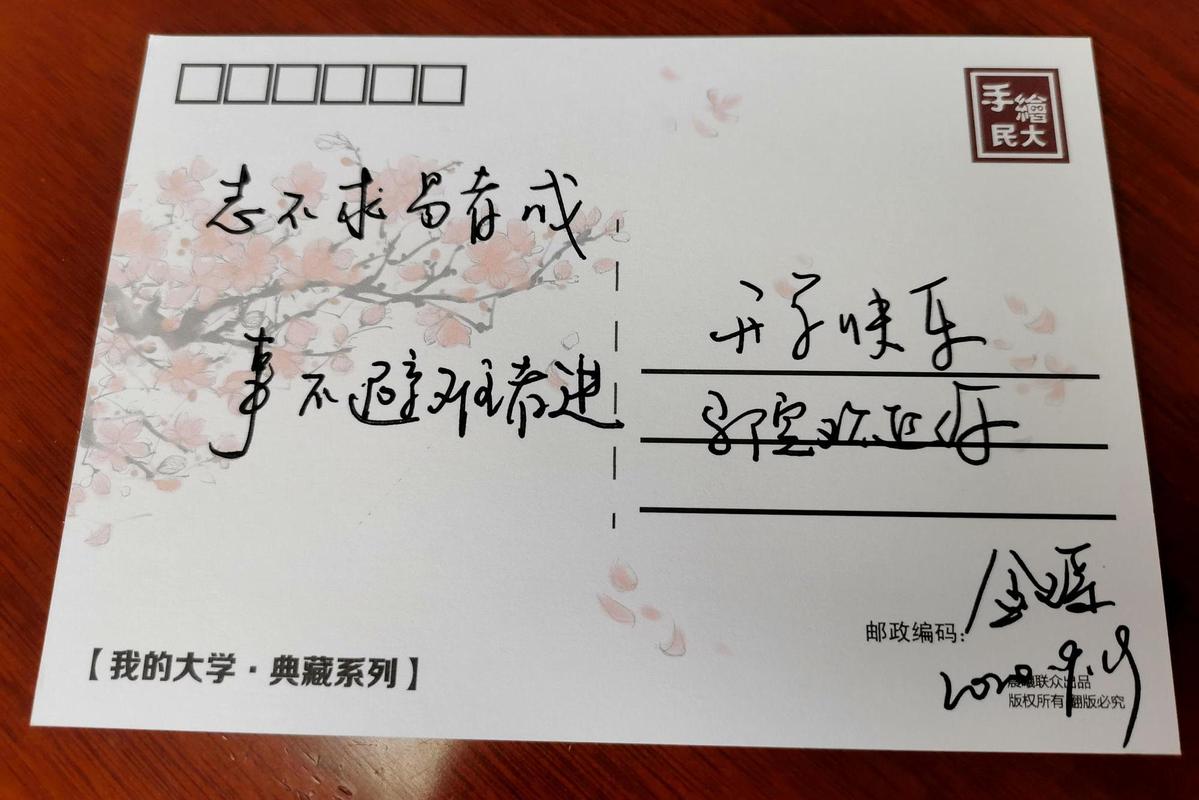 手繪
民大
志不求易者成
事不避难者进
开学快乐
欢迎你
邮政编码：
2020.9.19
联众出品
版权所有 翻版必究
【我的大学·典藏系列】